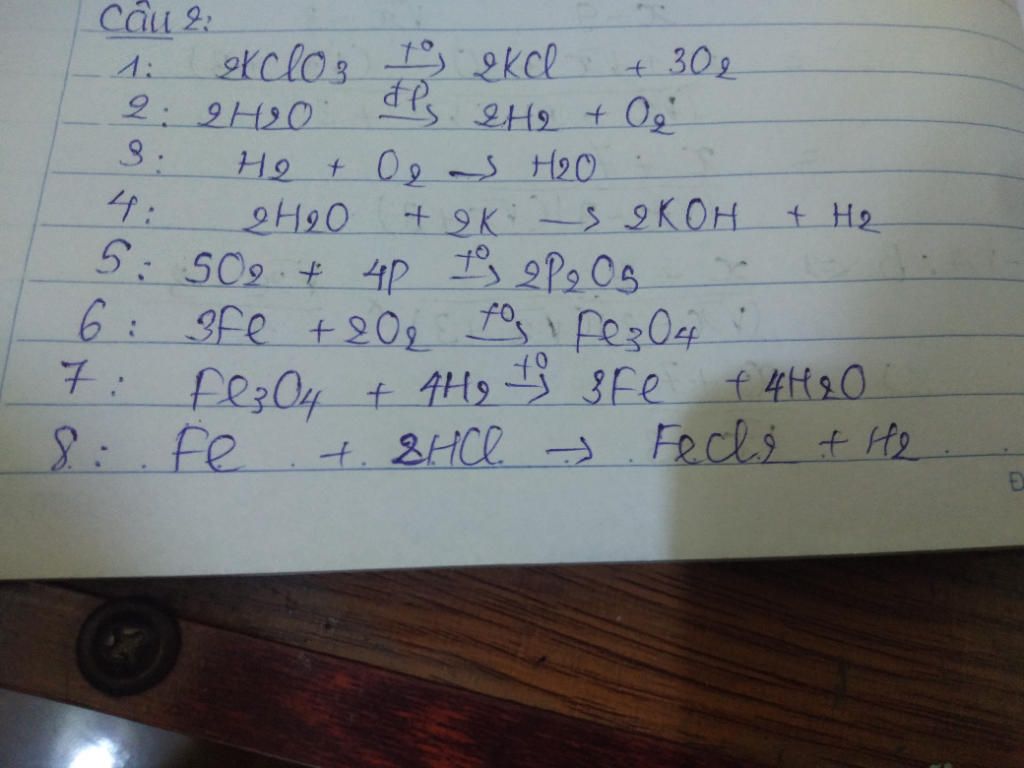 Câu 2:
1: 2KClO3 t° → 2KCl + 3O2
2: 2H2O đp → 2H2 + O2
3: H2 + O2 → H2O
4: 2H2O + 2K → 2KOH + H2
5: 5O2 + 4P t° → 2P2O5
6: 3Fe + 2O2 t° → Fe3O4
7: Fe3O4 + 4H2 t° → 3Fe + 4H2O
8: Fe + 2HCl → FeCl2 + H2
Đ